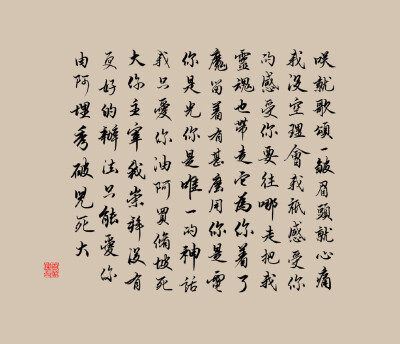 咲就歌頌一皺眉頭就心痛
我沒空理會我祇感受你
的感受你要往哪走把我
靈魂也帶走它為你着了
魔留着有甚麼用你是電
你是光你是唯一的神話
我只愛你油阿買脩坡死
大你主宰我崇拜沒有
更好的辦法只能愛你
由阿埋秀破兒死大